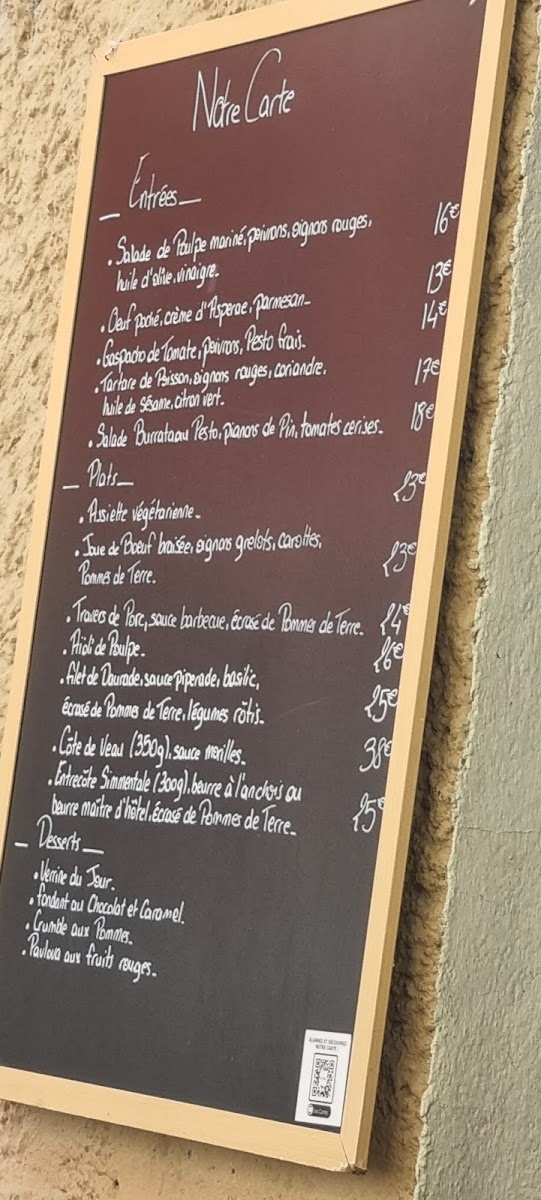 Notre Carte
_ Entrées _
• Salade de Poulpe mariné, poivrons, oignons rouges, 16€
huile d'olive, vinaigre.
• Oeuf poché, crème d'Asperge, parmesan. 13€
• Gaspacho de Tomate, poivrons, Pesto frais. 14€
• Tartare de Poisson, oignons rouges, coriandre, 17€
huile de sésame, citron vert.
• Salade Burrata au Pesto, pignons de Pin, tomates cerises. 18€
_ Plats _
• Assiette végétarienne. 23€
• Joue de Boeuf braisée, oignons grelots, carottes, 23€
Pommes de Terre.
• Travers de Porc, sauce barbecue, écrasé de Pommes de Terre. 24€
• Aïoli de Poulpe. 26€
• filet de Daurade, sauce piperade, basilic,
écrasé de Pommes de Terre, légumes rôtis. 25€
• Côte de Veau (350g), sauce morilles. 38€
• Entrecôte Simmentale (300g), beurre à l'anchois ou
beurre maître d'hôtel, écrasé de Pommes de Terre. 25€
_ Desserts _
• Verrine du Jour.
• fondant au Chocolat et Caramel.
• Crumble aux Pommes.
• Pavlova aux fruits rouges.
SCANNEZ ET DÉCOUVREZ
NOTRE CARTE !